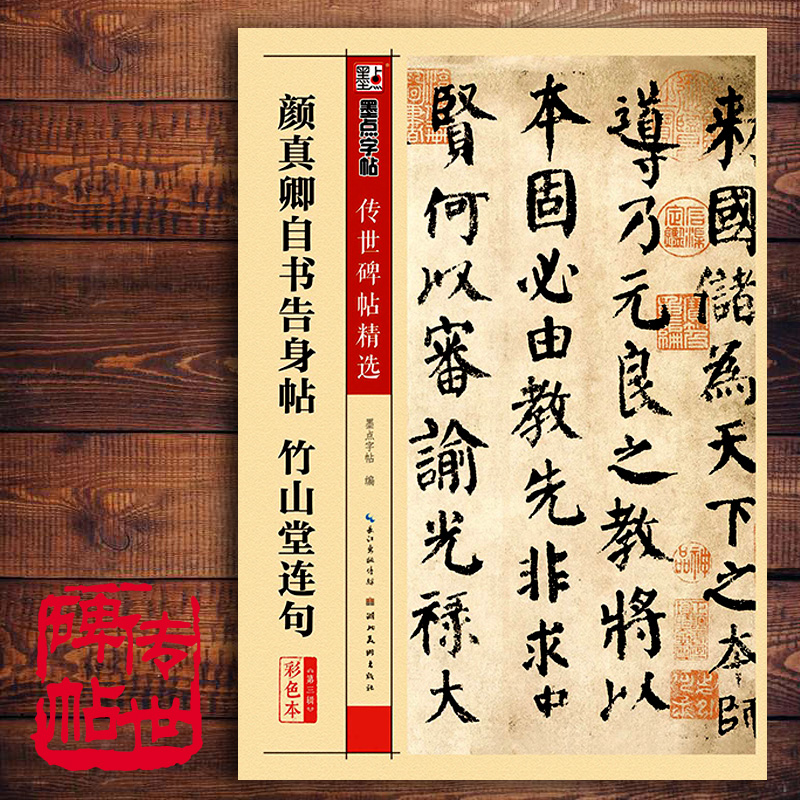 颜真卿自书告身帖 竹山堂连句
彩色本
《第三辑》
墨点
墨点字帖
传世碑帖精选
墨点字帖 编
长江出版传媒
湖北美术出版社
来國儲為天下之本師
導乃元良之教將以
本固必由教先非求中
賢何以審諭光祿大
传世碑帖
神品